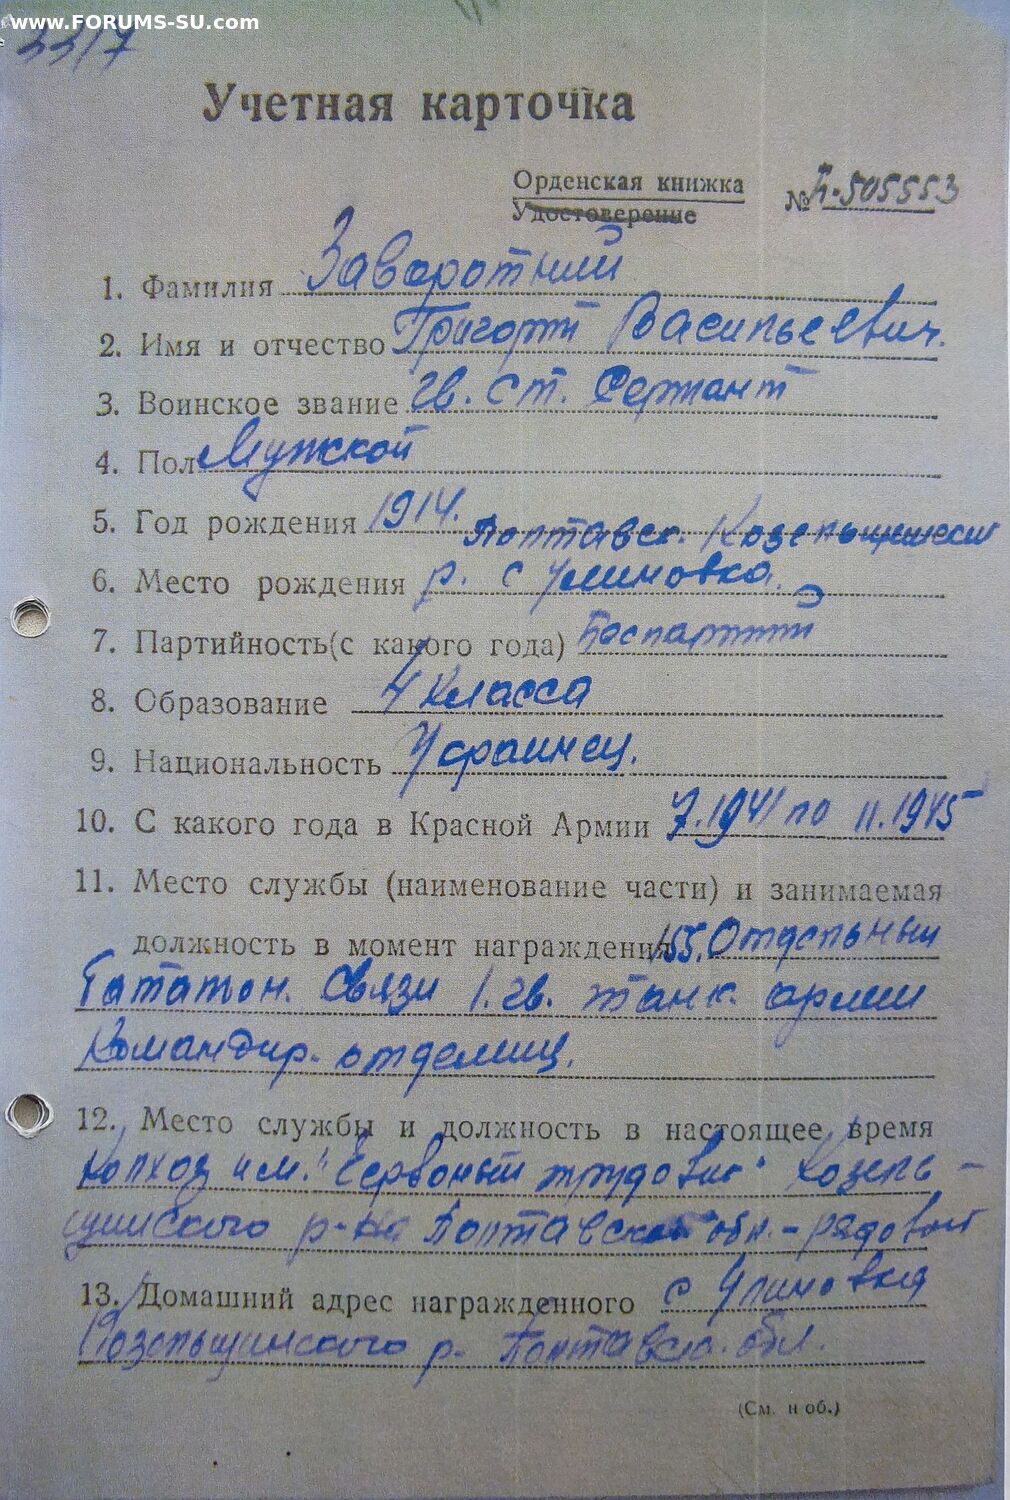 www.FORUMS-SU.com
3317
Учетная карточка
Орденская книжка
Удостоверение
№ Д-505553
1. Фамилия Заворотний
2. Имя и отчество Григорий Васильевич.
3. Воинское звание гв. ст. Сержант
4. Пол Мужской
5. Год рождения 1914.
Полтавск. Козельщинский
6. Место рождения р. с
7. Партийность (с какого года) Беспартий
8. Образование 4 класса
9. Национальность Украинец.
10. С какого года в Красной Армии 7.1941 по 11.1945
11. Место службы (наименование части) и занимаемая
должность в момент награждения 155, Отдельный
Батальон. Связи 1. гв. танк. армии
Командир. отделиц.
12. Место службы и должность в настоящее время
колхоз им. "Червоный трудовик" Козель-
щинского р-на Полтавской обл. - рядовой
13. Домашний адрес награжденного с
Козельщинского р. Полтавска. обл.
(См. н об.)